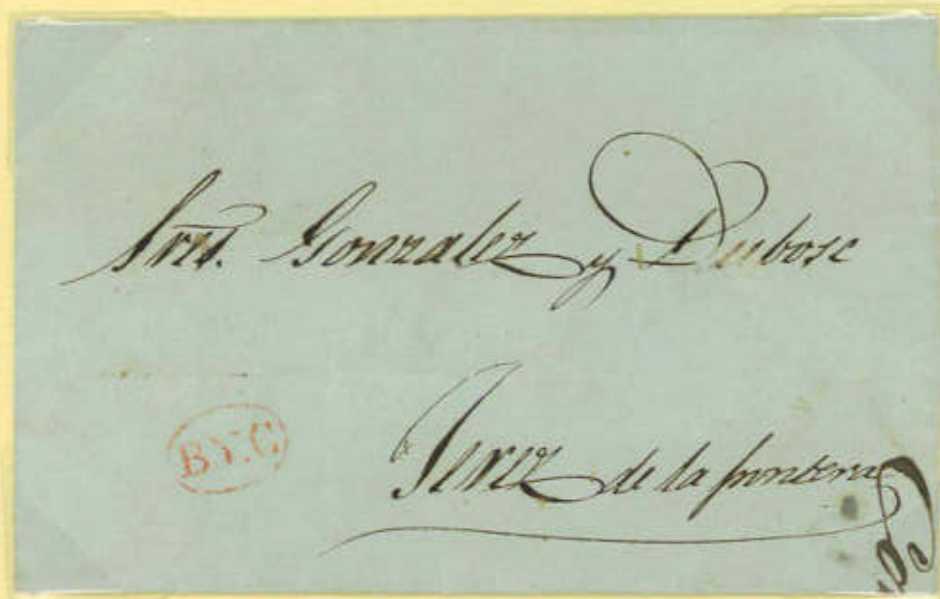 Sres. Gonzalez y Dubosc
B.Y.C
Jerez de la frontera